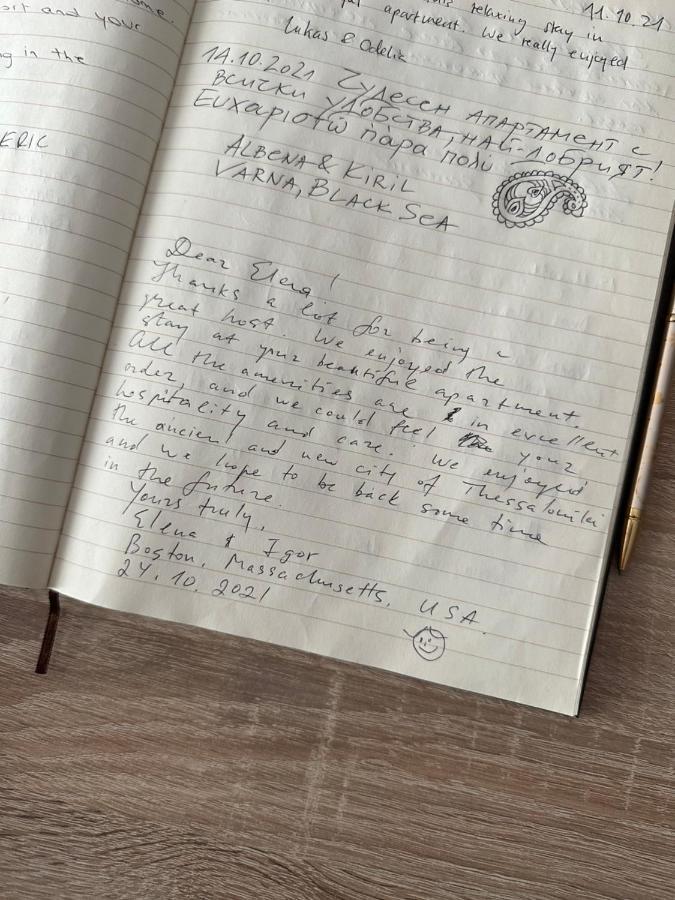 ort and your
g in the
ERIC
11.10.21
relaxing stay in
apartment. We really enjoyed
Lukas & Odelie
14.10.2021 Чудесен апартамент с
всички удобства, най-добрият!
Ευχαριστώ πάρα πολύ
ALBENA & KIRIL
VARNA, BLACK SEA
Dear Elena!
Thanks a lot for being a
great host. We enjoyed the
stay at your beautiful apartment.
All the amenities are in excellent
order, and we could feel your
hospitality and care. We enjoyed
the ancient and new city of Thessaloniki
and we hope to be back some time
in the future.
Yours truly,
Elena & Igor
Boston, Massachusetts, USA.
24.10.2021